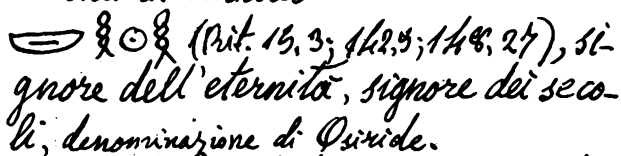 𓎟𓎛𓇳𓎛 (Rit. 15, 3; 142, 9; 148, 27), si-
gnore dell'eternità, signore dei seco-
li, denominazione di Osiride.